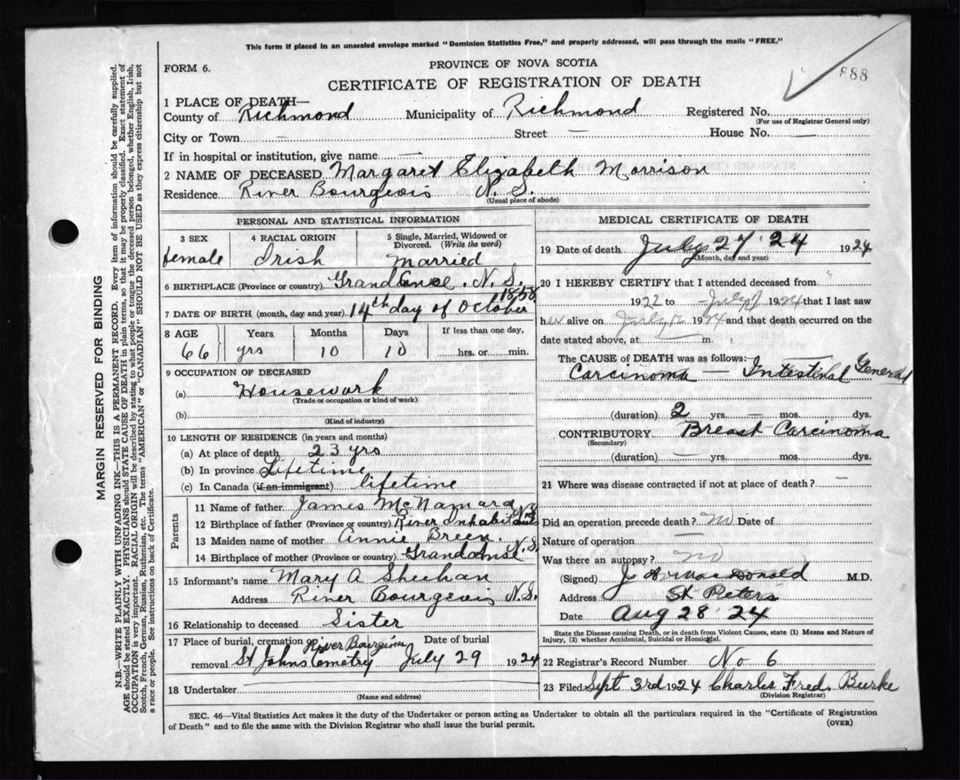 This form if placed in an unsealed envelope marked "Dominion Statistics Free," and properly addressed, will pass through the mails "FREE."
FORM 6.
PROVINCE OF NOVA SCOTIA
CERTIFICATE OF REGISTRATION OF DEATH
888
1 PLACE OF DEATH—
County of Richmond Municipality of Richmond Registered No.
(For use of Registrar General only)
City or Town — Street — House No. —
If in hospital or institution, give name —
2 NAME OF DECEASED Margaret Elizabeth Morrison
Residence River Bourgeois N. S.
(Usual place of abode)
PERSONAL AND STATISTICAL INFORMATION
3 SEX
female
4 RACIAL ORIGIN
Irish
5 Single, Married, Widowed or Divorced. (Write the word)
Married
6 BIRTHPLACE (Province or country) Grand Anse. N. S.
7 DATE OF BIRTH (month, day and year) 14th day of October 1858
8 AGE Years Months Days If less than one day,
66 yrs 10 10 hrs. or min.
9 OCCUPATION OF DECEASED
(a) Housework
(Trade or occupation or kind of work)
(b)
(Kind of industry)
10 LENGTH OF RESIDENCE (in years and months)
(a) At place of death 23 yrs
(b) In province Lifetime
(c) In Canada (if an immigrant) lifetime
Parents
11 Name of father James McNamara
12 Birthplace of father (Province or country) River Inhabitants N.S.
13 Maiden name of mother Annie Breen.
14 Birthplace of mother (Province or country) Grandanse N.S.
15 Informant's name Mary A Sheehan
Address River Bourgeois N.S.
16 Relationship to deceased Sister
17 Place of burial, cremation or removal River Bourgeois St Johns Cemetry
Date of burial July 29 1924
18 Undertaker
(Name and address)
MEDICAL CERTIFICATE OF DEATH
19 Date of death July 27 '24 1924
(Month, day and year)
20 I HEREBY CERTIFY that I attended deceased from
1922 to July 1924 that I last saw
her alive on July 1924 and that death occurred on the
date stated above, at m.
The CAUSE OF DEATH was as follows:
Carcinoma — Intestinal General
(duration) 2 yrs. — mos. dys.
CONTRIBUTORY Breast Carcinoma
(Secondary)
(duration) — yrs. — mos. dys.
21 Where was disease contracted if not at place of death?
—
Did an operation precede death? No Date of
Nature of operation —
Was there an autopsy? No
(Signed) M.D.
Address St Peters
Date Aug 28 '24
State the Disease causing Death, or in death from Violent Causes, state (1) Means and Nature of Injury, (2) whether Accidental, Suicidal or Homicidal.
22 Registrar's Record Number No 6
23 Filed Sept 3rd 1924 Charles Fred. Burke
(Division Registrar)
SEC. 46—Vital Statistics Act makes it the duty of the Undertaker or person acting as Undertaker to obtain all the particulars required in the "Certificate of Registration
of Death" and to file the same with the Division Registrar who shall issue the burial permit.
(OVER)
MARGIN RESERVED FOR BINDING
N.B.—WRITE PLAINLY WITH UNFADING INK—THIS IS A PERMANENT RECORD. Every item of information should be carefully supplied.
AGE should be stated EXACTLY. PHYSICIANS should STATE CAUSE OF DEATH in plain terms, so that it may be properly classified. Exact statement of
OCCUPATION is very important. RACIAL ORIGIN will be described by stating to what people or tongue the deceased person belonged, whether English, Irish,
Scotch, French, German, Russian, Ruthenian, etc. The terms "AMERICAN" or "CANADIAN" SHOULD NOT BE USED as they express citizenship but not
a race or people. See instructions on back of Certificate.